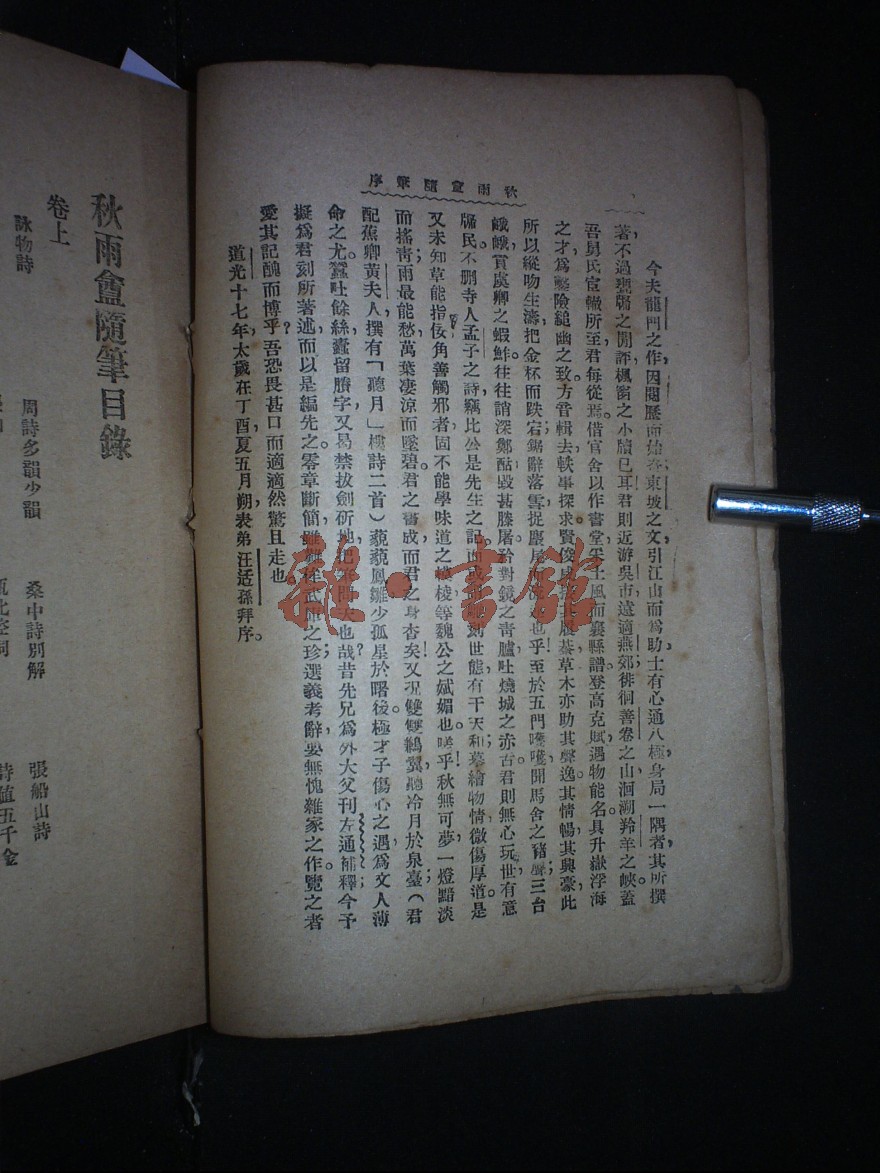 秋雨盦隨筆序
今夫龍門之作，因閱歷而始奇；東坡之文，引江山而爲助。士有心通八極，身局一隅者，其所撰
著，不過甕牖之閒評，楓窗之小牘已耳。君則近游吳市，遠適燕郊，徘徊善卷之山，洄溯羚羊之峽。蓋
吾舅氏宦轍所至，君每從焉。借官舍以作書堂，采土風而襄縣譜。登高克賦，遇物能名。具升嶽浮海
之才，爲鑿險縋幽之致。方言輯去，軼事探求。賢俊盛
草木亦助其聲，逸其情，暢其興，豪此
所以縱吻生濤，把金杯而跌宕；鋸辭落雪，捉麈尾而
也乎！至於五門嘵嘵，開馬舍之豬廲；三台
峨峨，賞虞卿之蝦鮓。往往誚深鄭酤，毀甚滕屠，矜對鏡之靑臚，吐燒城之赤舌。君則無心玩世，有意
牖民。不删寺人孟子之詩，竊比公是先生之記。而或
刻世態，有干天和；摹繪物情，微傷厚道。是
又未知草能指佞，角善觸邪者，固不能學味道之模棱，等魏公之斌媚也！嗟乎！秋無可夢，一燈黯淡
而搖靑；雨最能愁，萬葉凄涼而墜碧。君之書成，而君之身杳矣！又況雙雙鶼翼，聽冷月於泉臺；（君
配蕉卿黃夫人撰有「聽月」樓詩二首）藐藐鳳雛，少孤星於曙後。極才子傷心之遇，爲文人薄
命之尤。蠶吐餘絲，蠹留賸字，又曷禁拔劍斫地，把
問天也哉？昔先兄爲外大父刊左通補釋，今予
擬爲君刻所著述，而以是編先之。零章斷簡，雖
武庫之珍；選義考辭，要無愧雜家之作。覽之者
愛其記醜而博乎？吾恐畏甚口而適適然驚且走也。
道光十七年，太歲在丁酉，夏五月朔，表弟汪适孫拜序。
秋雨盦隨筆目錄
卷上
詠物詩
周詩多韻少韻
桑中詩別解
張船山詩
詩値五千金
雜·書館